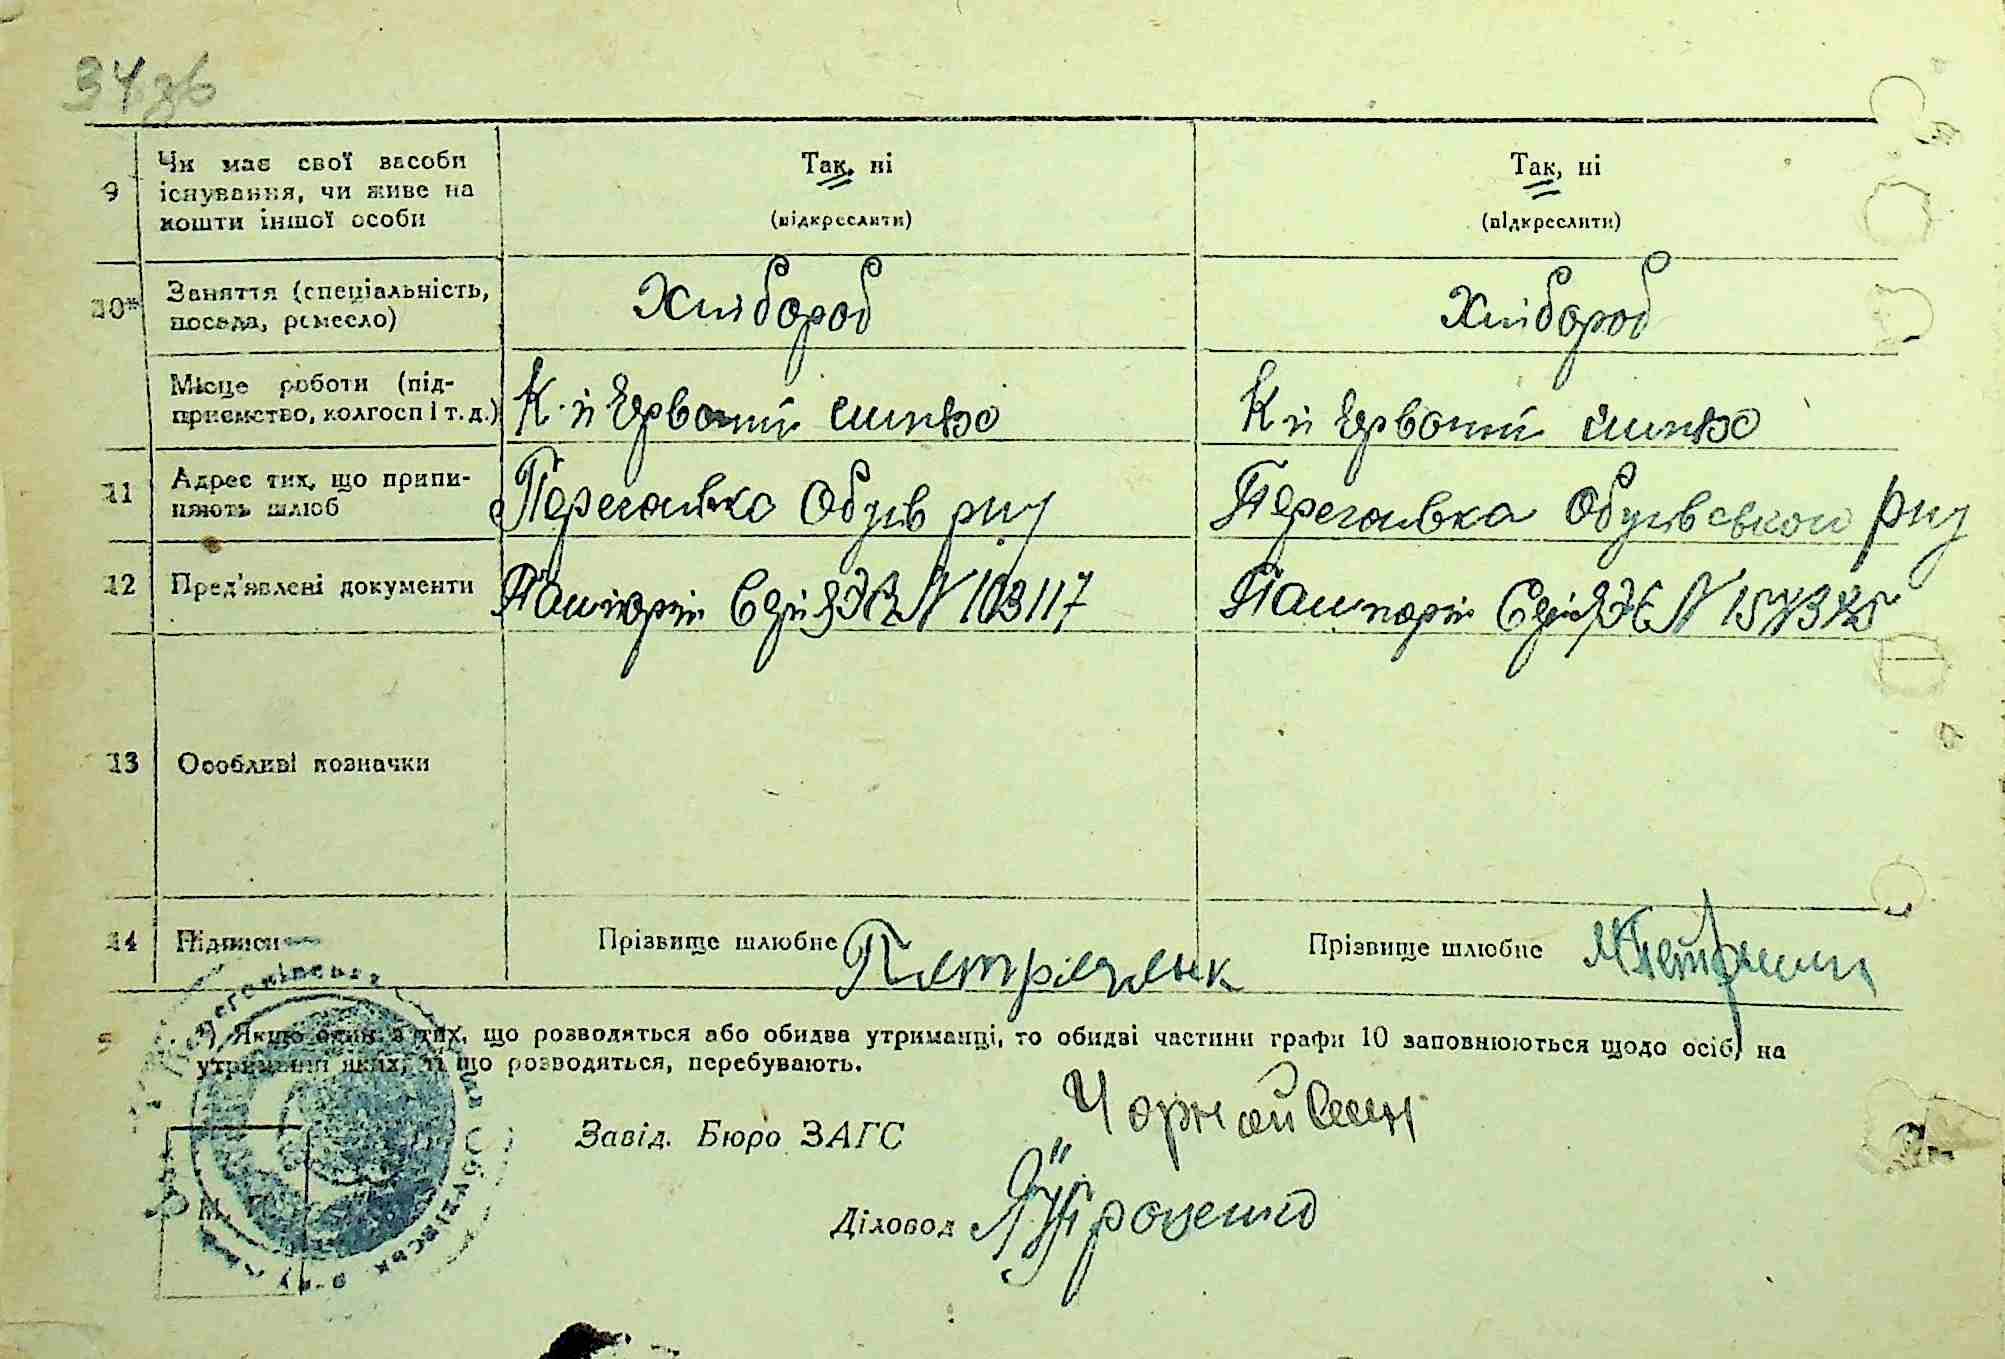 34зв
9 Чи має свої засоби Так, ні Так, ні
існування, чи живе на
кошти іншої особи (підкреслити) (підкреслити)
10* Заняття (спеціальність, Хлібороб Хлібороб
посада, ремесло)
Місце роботи (під-
приємство, колгосп і т. д.) К-п Червоний К-п Червоний
11 Адрес тих, що припи- Перегонівка Обухів р-ну Перегонівка Обухівського р-ну
няють шлюб
12 Пред'явлені документи Пашпорт Серія N 103117 Пашпорт Серія N
13 Особливі позначки
14 Підписи Прізвище шлюбне Прізвище шлюбне
*) Якщо один з тих, що розводяться або обидва утриманці, то обидві частини графи 10 заповнюються щодо осіб, на
утриманні яких, ті що розводяться, перебувають.
Завід. Бюро ЗАГС
Діловод